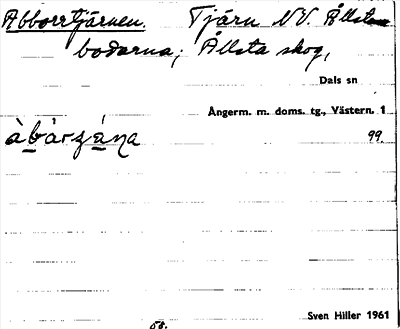 Abborrtjärnen. Tjärn NV. Ållsta
bodarna; Ållsta skog,
Dals sn
Ångerm. m. doms. tg., Västern. 1
99.
Sven Hiller 1961
50.